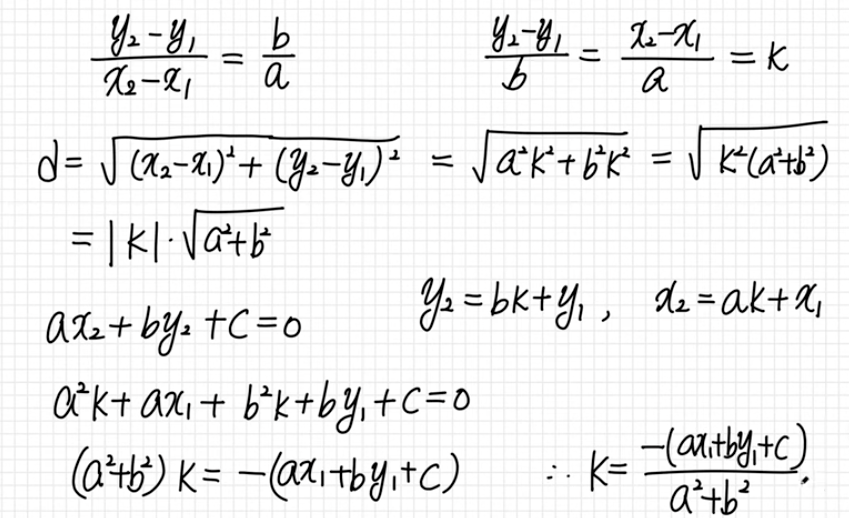 (y₂-y₁)/(x₂-x₁) = b/a    (y₂-y₁)/b = (x₂-x₁)/a = k
d = √((x₂-x₁)²+(y₂-y₁)²) = √(a²k²+b²k²) = √(k²(a²+b²))
= |k|·√(a²+b²)
y₂=bk+y₁, x₂=ak+x₁
ax₂+by₂+c=0
a²k+ax₁+b²k+by₁+c=0
(a²+b²)k=-(ax₁+by₁+c)    ∴ k= -(ax₁+by₁+c)/(a²+b²).